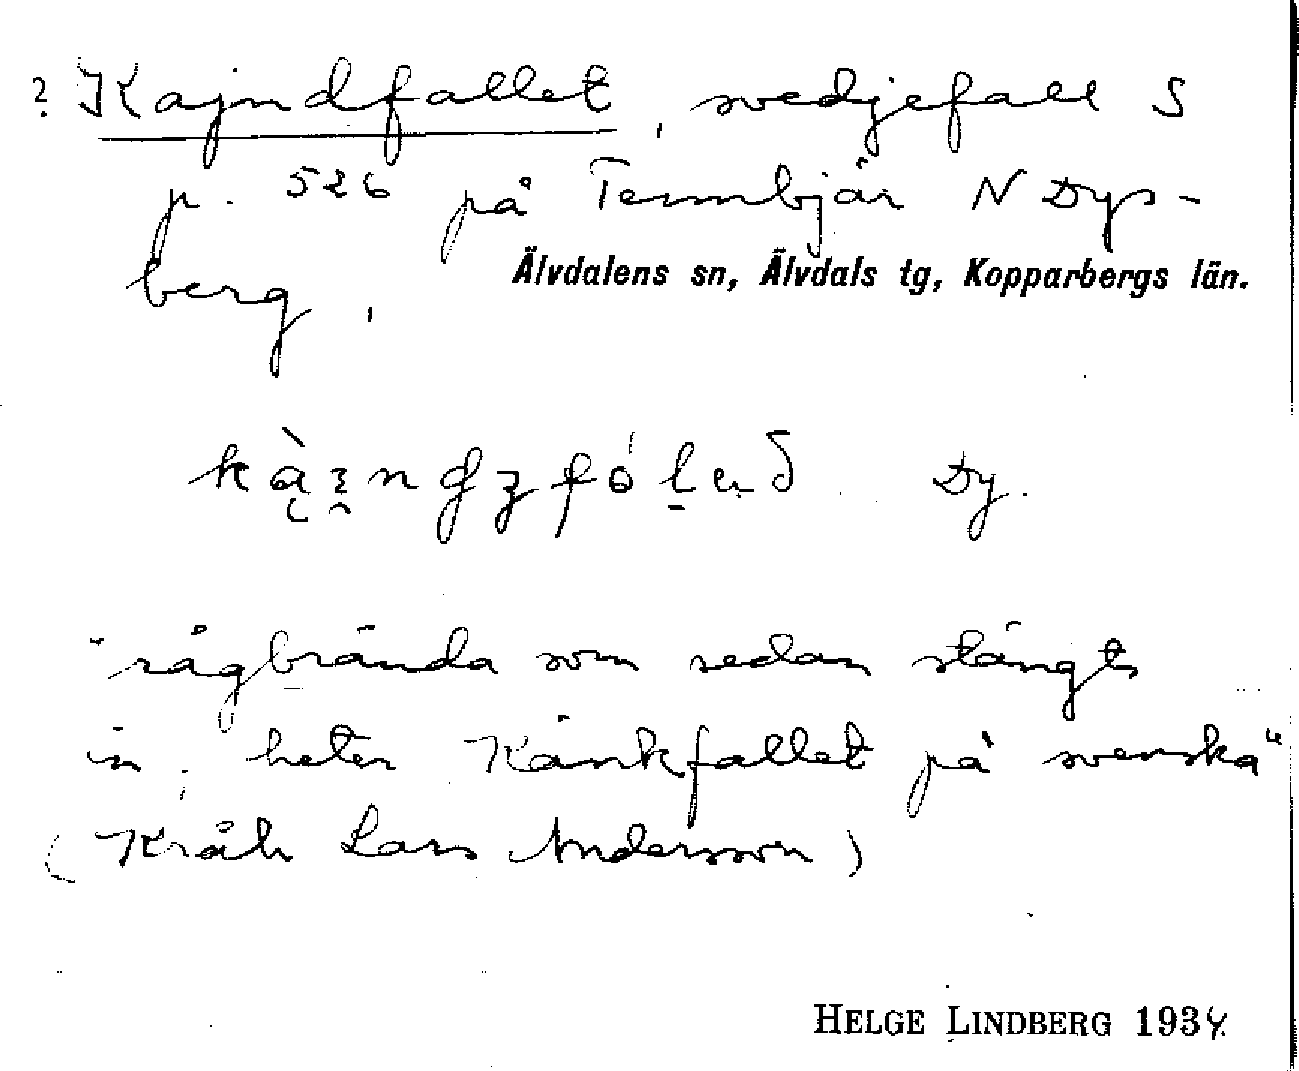 ? Kajndfallet, svedjefall S
p. 526 på Tennbjär N Dys-
berg,
Älvdalens sn, Älvdals tg, Kopparbergs län.
Dy.
"rågbrända som sedan stängts
in, heter Känkfallet på svenska"
(Kråk Lars Andersson)
HELGE LINDBERG 1934.